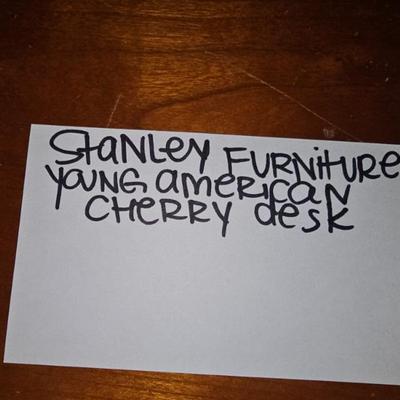 StaNLey FURNitURe
YOUNG ameRiCaN
CHeRRY desk